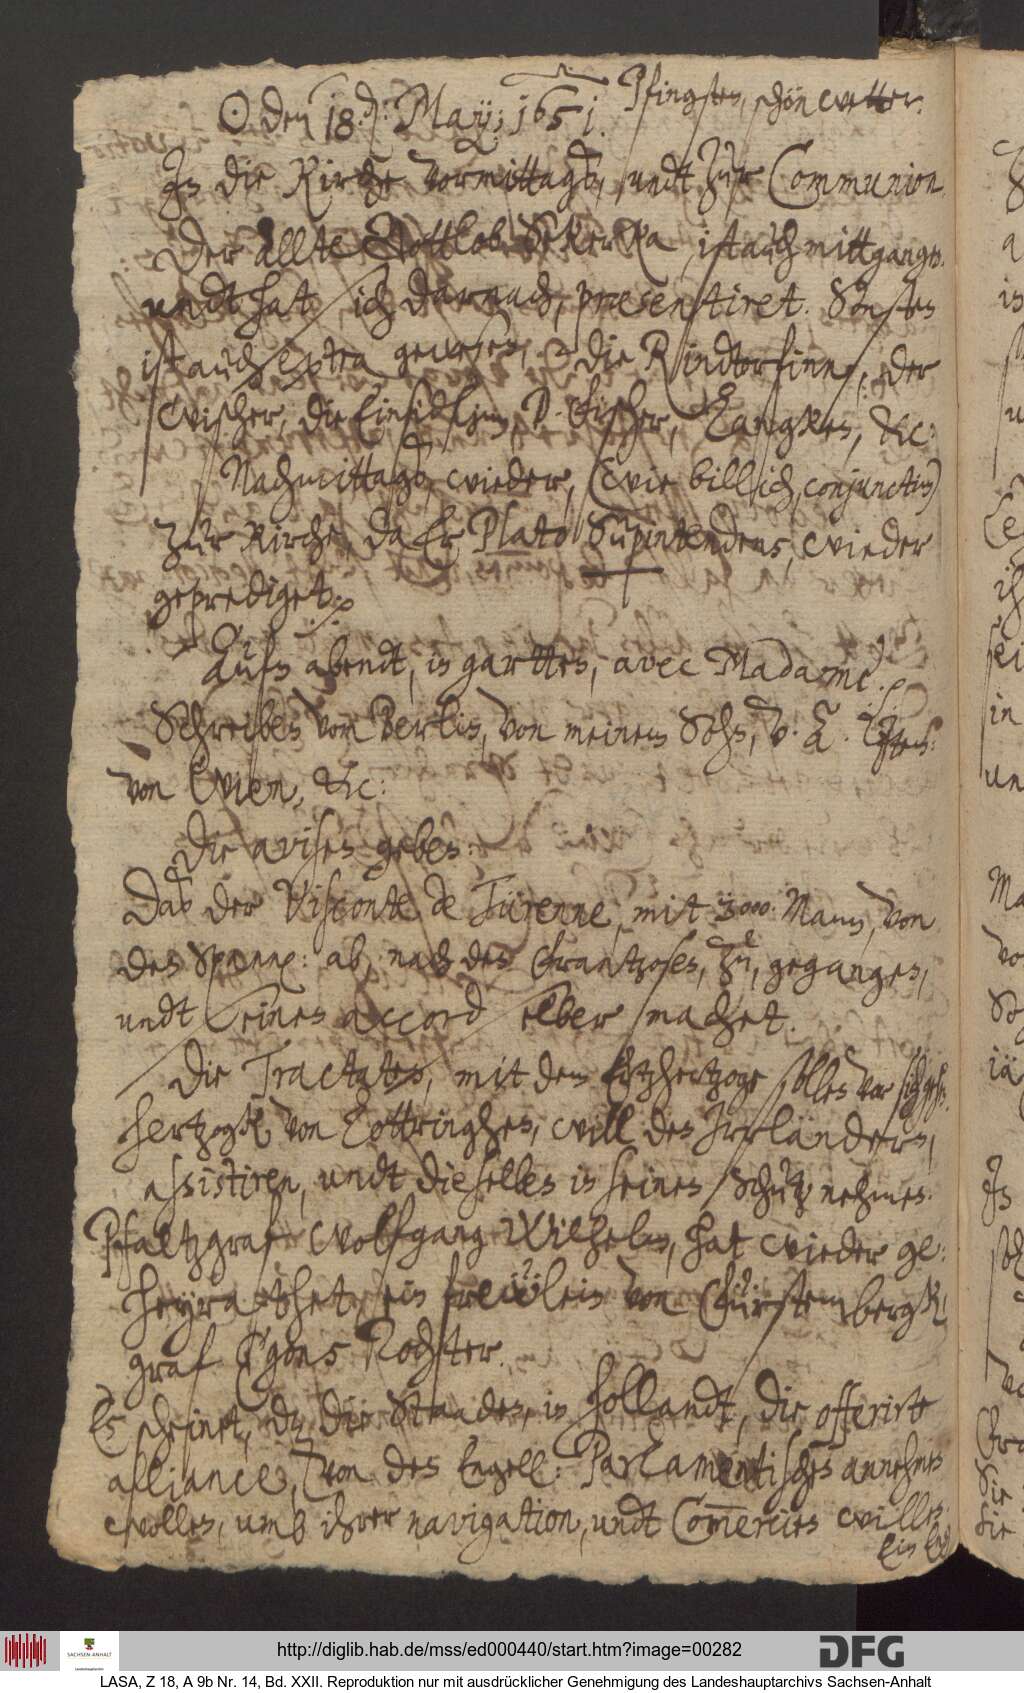 ☉ den 18. d: Maÿ; 1651. Pfingsten, schön wetter.
In die Kirche vormittagß, undt zur Communion.
Der ällte Gottlob Sekerka, ist auch mittgangen.
undt hat sich darnach, præsentiret. Sonsten
ist auch extra gewesen, die Rindtorfinn, der
Wischer, die Einsidlinn, D. Fischer, Langkus, &c:
Nachmittagß, wieder, (wie billich, conjunctim)
zur Kirche, da Er Plato Supintendens, wieder
geprediget.
Aufn abendt, in gartten, avec Madame.
Schreiben vom Berlin, von meinem Sohn, v.
von Wien, &c:
Die avisen geben:
Daß der Visconte de Türenne, mit 3000. Mann, von
den Spann: ab, nach den Frantzosen, zu, gegangen,
undt seinen accord selber machet.
Die Tractaten, mit dem Ertzhertzoge sollen vor sich gehen.
Hertzogk von Lottringhen, will den Irrländern,
assistiren, undt dieselben in seinen Schutz nehmen.
Pfaltzgraf Wolfgang Wilhelm, hat wieder ge:
heyrathet, ein frewlein von Fürstembergk,
graf Egons Tochter.
Es scheinet, dz die Staaden, in Hollandt, die offerirte
alliance, von den Engell: Parlamentischen annehmen
wollen, umb ihrer navigation, undt Comercien willen.
Ein
http://diglib.hab.de/mss/ed000440/start.htm?image=00282
SACHSEN-ANHALT
Landeshauptarchiv
DFG
LASA, Z 18, A 9b Nr. 14, Bd. XXII. Reproduktion nur mit ausdrücklicher Genehmigung des Landeshauptarchivs Sachsen-Anhalt